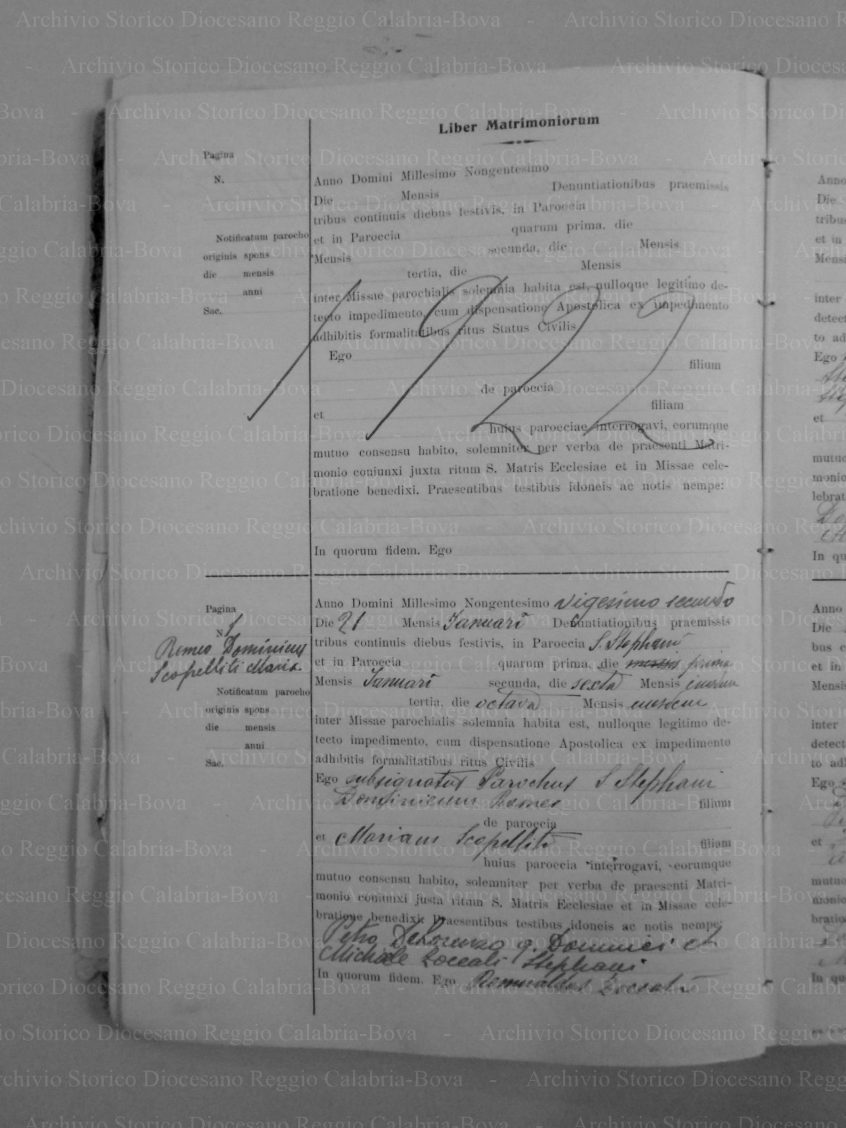 Liber Matrimoniorum
Pagina
N.
Notificatum parocho
originis spons
die mensis
anni
Sac.
Anno Domini Millesimo Nongentesimo
Die Mensis Denuntiationibus praemissis
tribus continuis diebus festivis, in Paroecia
et in Paroecia quarum prima, die
Mensis secunda, die Mensis
tertia, die Mensis
inter Missae parochialis solemnia habita est, nulloque legitimo de-
tecto impedimento, cum dispensatione Apostolica ex impedimento
adhibitis formalitatibus ritus Status Civilis
Ego
filium
de paroecia
et filiam
huius paroeciae interrogavi, eorumque
mutuo consensu habito, solemniter per verba de praesenti Matri-
monio coniunxi juxta ritum S. Matris Ecclesiae et in Missae cele-
bratione benedixi. Praesentibus testibus idoneis ac notis nempe:
In quorum fidem. Ego
1922
Pagina
N. 1
Romeo Dominicus
Scopelliti Maria
Notificatum parocho
originis spons
die mensis
anni
Sac.
Anno Domini Millesimo Nongentesimo vigesimo secundo
Die 21 Mensis Januarii Denuntiationibus praemissis
tribus continuis diebus festivis, in Paroecia S. Stephani
et in Paroecia quarum prima, die prima
Mensis Januarii secunda, die sexta Mensis eiusdem
tertia, die octava Mensis eiusdem
inter Missae parochialis solemnia habita est, nulloque legitimo de-
tecto impedimento, cum dispensatione Apostolica ex impedimento
adhibitis formalitatibus ritus Civilis
Ego subsignatus Parochus S Stephani
Dominicum Romeo filium
de paroecia
et Mariam Scopelliti filiam
huius paroecia interrogavi, eorumque
mutuo consensu habito, solemniter per verba de praesenti Matri-
monio coniunxi justa ritum S. Matris Ecclesiae et in Missae cele-
bratione benedixi: Praesentibus testibus idoneis ac notis nempe:
Petro DeLorenzo q. Dominici et
Michaele Zoccali Stephani
In quorum fidem. Ego Romualdus Zoccali